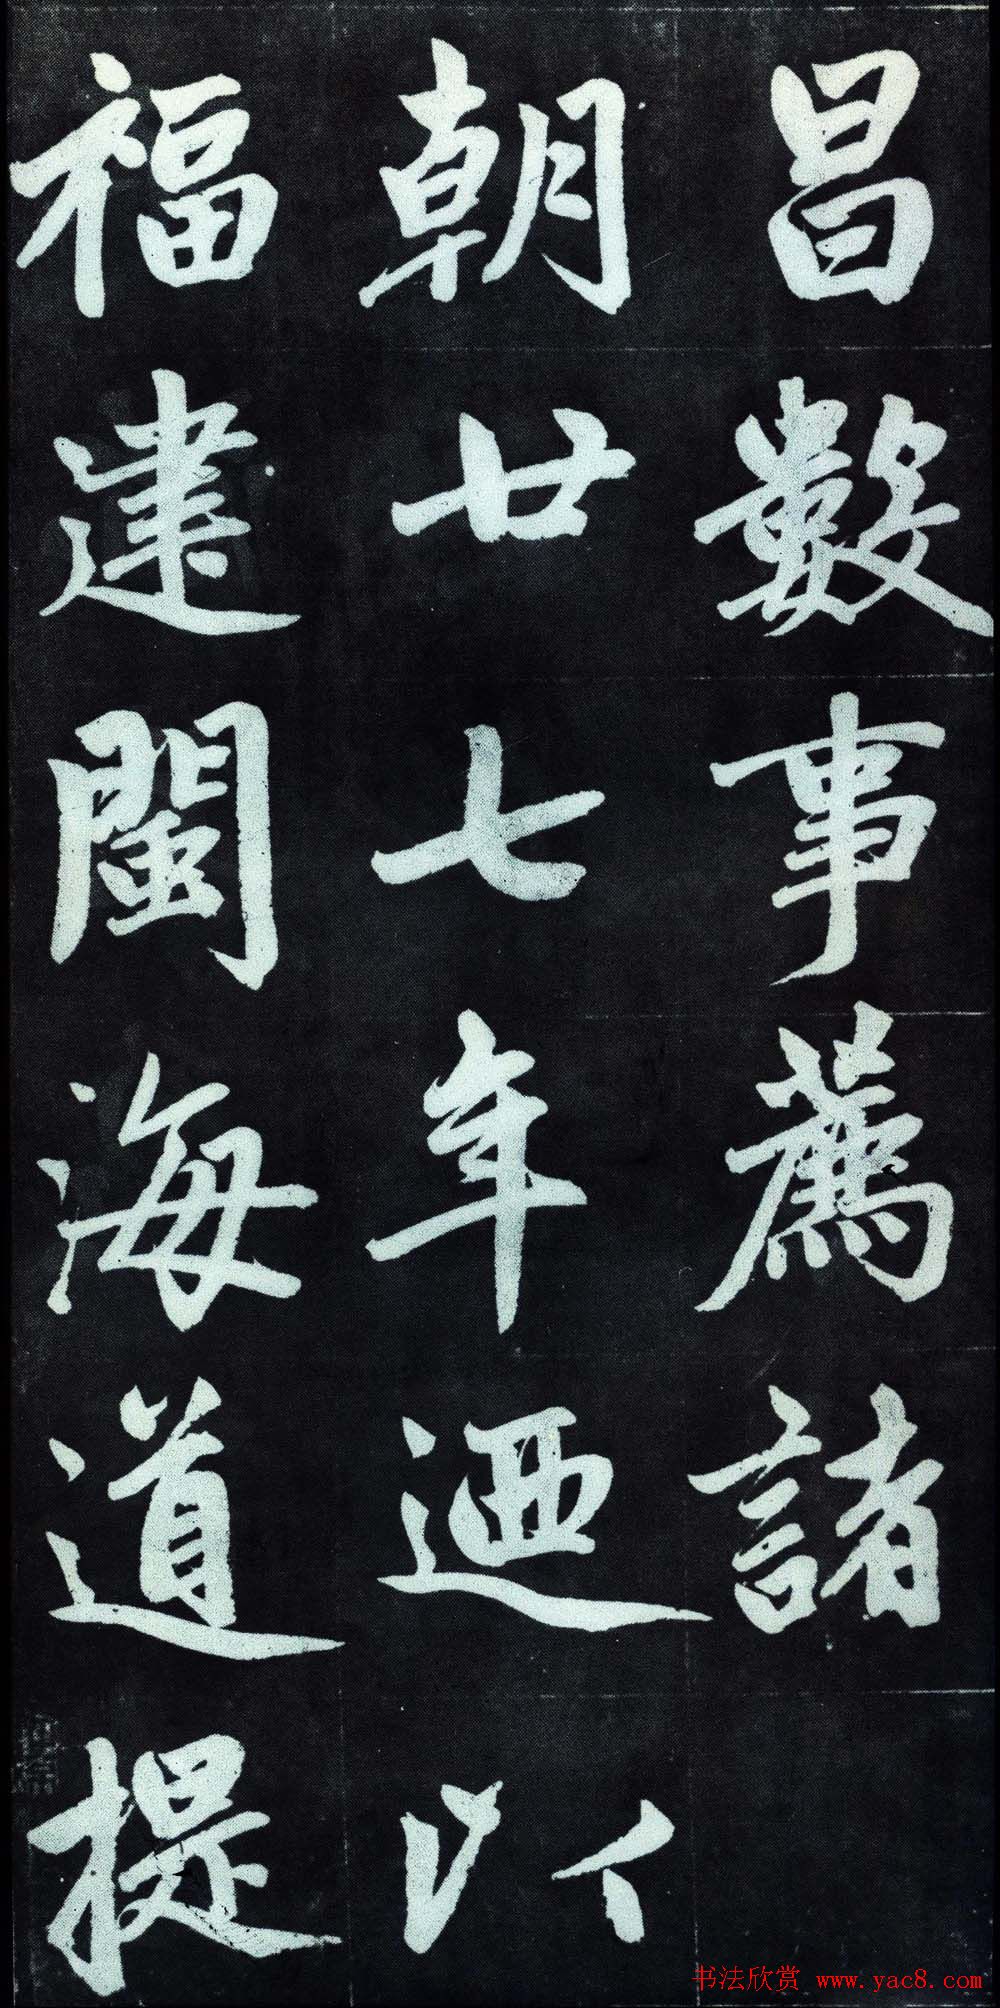 昌數事薦諸
朝廿七年迺以
福建閩海道提
书法欣赏 www.yac8.com